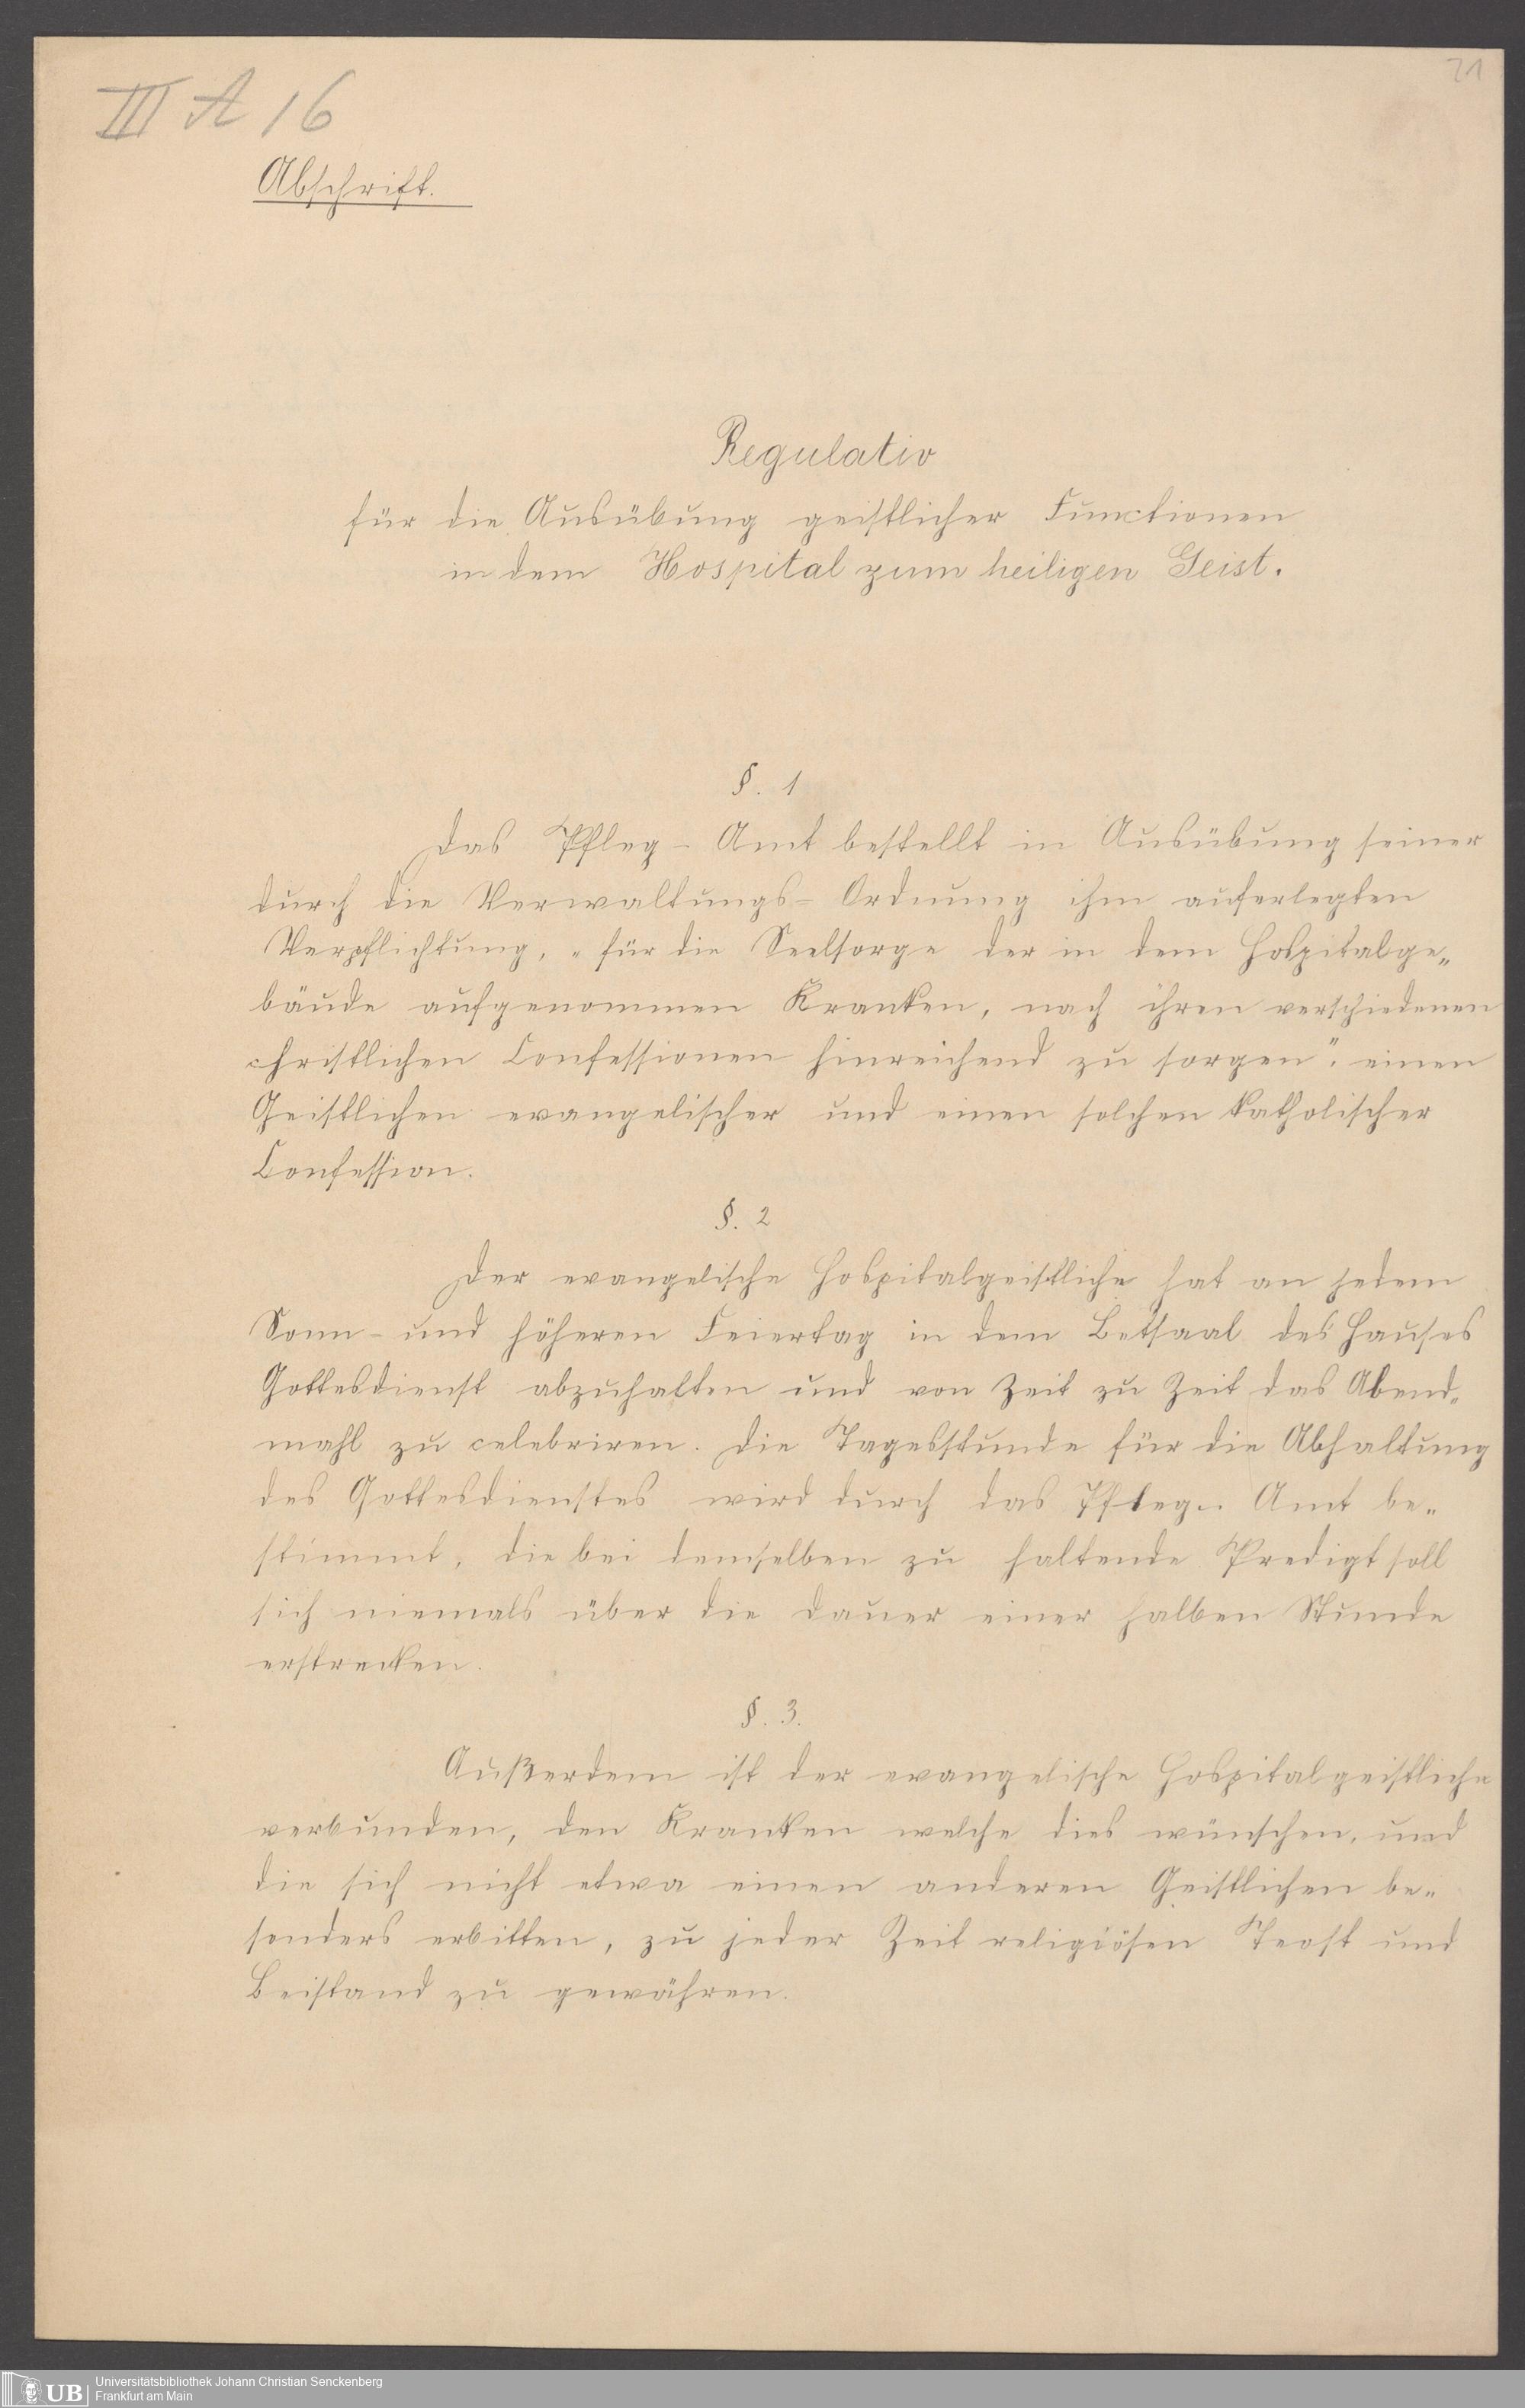 21
III A 16
Abschrift.
Regulativ
für die Ausübung geistlicher Functionen
in dem Hospital zum heiligen Geist.
§. 1
Das Pfleg-Amt bestellt in Ausübung seiner
durch die Verwaltungs-Ordnung ihm auferlegten
Verpflichtung, „für die Seelsorge der in dem Hospitalge„
bäude aufgenommen Kranken, nach ihren verschiedenen
christlichen Confessionen hinreichend zu sorgen". einen
Geistlichen evangelischer und einen solchen katholischer
Confession.
§. 2
Der evangelische Hospitalgeistliche hat an jedem
Sonn- und höheren Feiertag in dem Betsaal des Hauses
Gottesdienst abzuhalten und von Zeit zu Zeit das Abend„
mahl zu celebriren. Die Tagesstunde für die Abhaltung
des Gottesdienstes wird durch das Pfleg-Amt be„
stimmt, die bei demselben zu haltende Predigt soll
sich niemals über die Dauer einer halben Stunde
erstrecken.
§. 3.
Außerdem ist der evangelische Hospitalgeistliche
verbunden, den Kranken welche dies wünschen, und
die sich nicht etwa einen anderen Geistlichen be„
sonders erbitten, zu jeder Zeit religiösen Trost und
Beistand zu gewähren.
UB Universitätsbibliothek Johann Christian Senckenberg
Frankfurt am Main